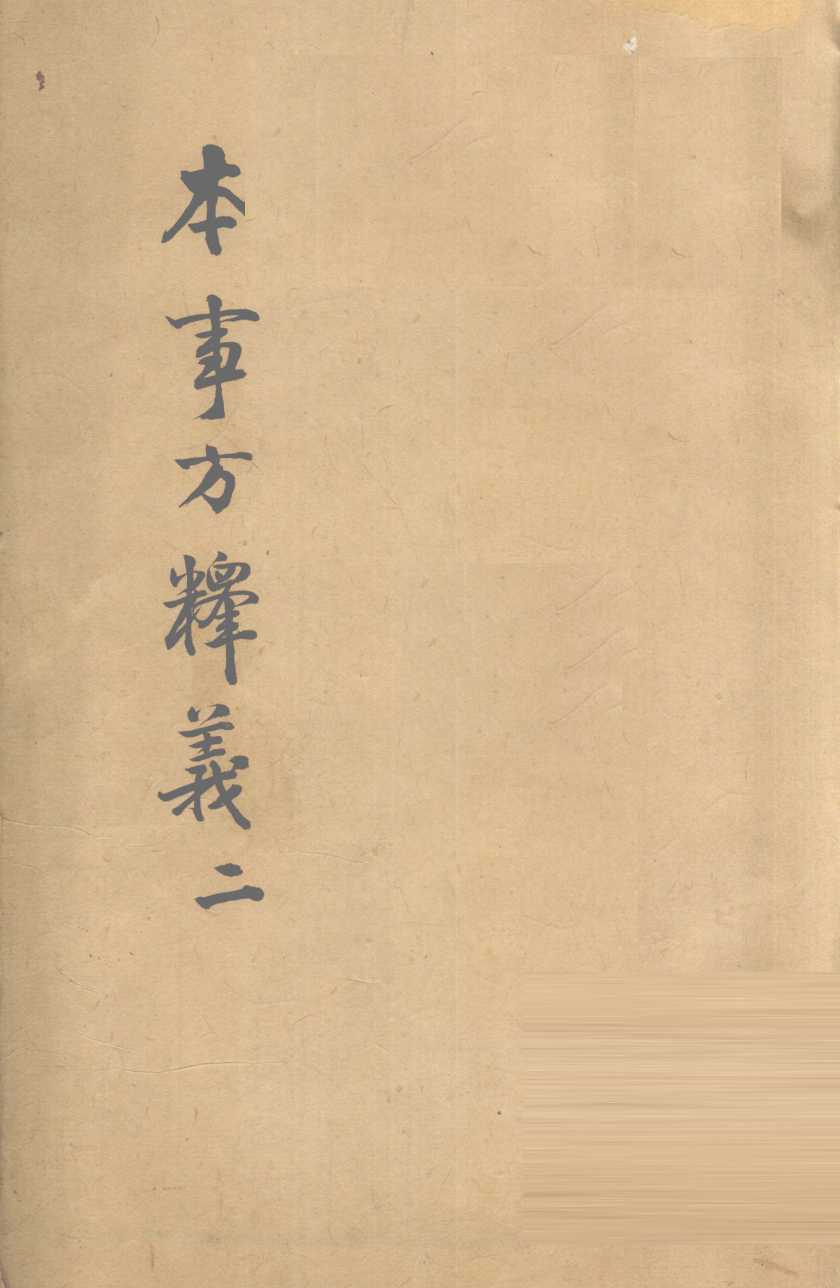 本事方釋義二